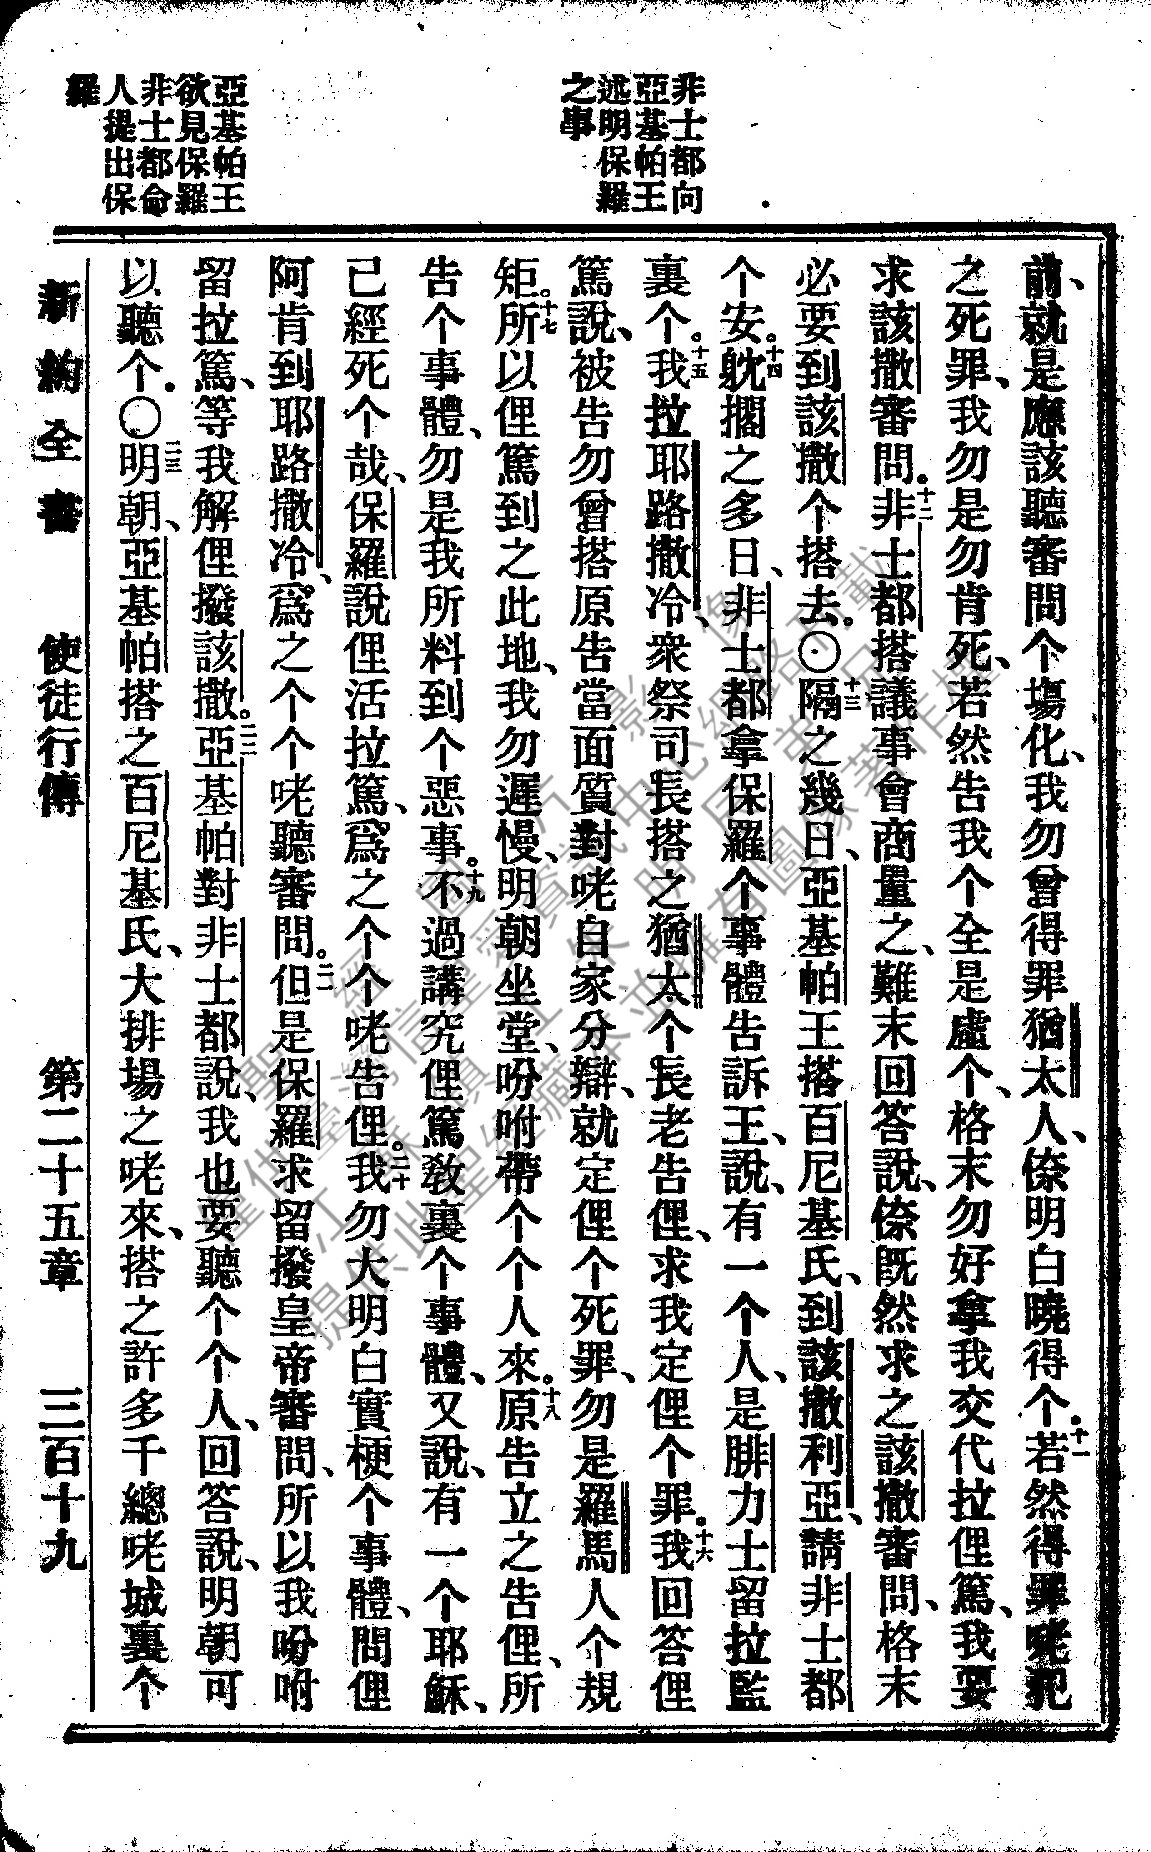 非士都向
亞基帕王
述明保羅
之事
亞基帕王
欲見保羅
非士都命
人提出保
羅
前、就是應該聽審問个塲化、我勿曾得罪猶太人、倷明白曉得个．十一若然得罪咾犯
之死罪、我勿是勿肯死、若然告我个全是虛个、格末勿好拿我交代拉俚篤、我要
求該撒審問。十二非士都搭議事會商量之、難末回答說、倷旣然求之該撒審問、格末
必要到該撒个搭去。〇十三隔之幾日、亞基帕王搭百尼基氏、到該撒利亞、請非士都
个安。十四躭擱之多日、非士都拿保羅个事體告訴王、說、有一个人、是腓力士留拉監
裏个。十五我拉耶路撒冷、衆祭司長搭之猶太个長老告俚、求我定俚个罪。十六我回答俚
篤說、被告勿曾搭原告當面質對咾自家分辯、就定俚个死罪、勿是羅馬人个規
矩。十七所以俚篤到之此地、我勿遲慢、明朝坐堂、吩咐帶个个人來。十八原告立之告俚、所
告个事體、勿是我所料到个惡事。十九不過講究俚篤敎裏个事體、又說、有一个耶穌、
已經死个哉、保羅說俚活拉篤、爲之个个咾告俚。二十我勿大明白實梗个事體、問俚
阿肯到耶路撒冷、爲之个个咾聽審問。二一但是保羅求留撥皇帝審問、所以我吩咐
留拉篤、等我解俚撥該撒。二二亞基帕對非士都說、我也要聽个个人、回答說、明朝可
以聽个．〇二三明朝、亞基帕搭之百尼基氏、大排塲之咾來、搭之許多千總咾城裏个
新約全書　使徒行傳　第二十五章　三百十九